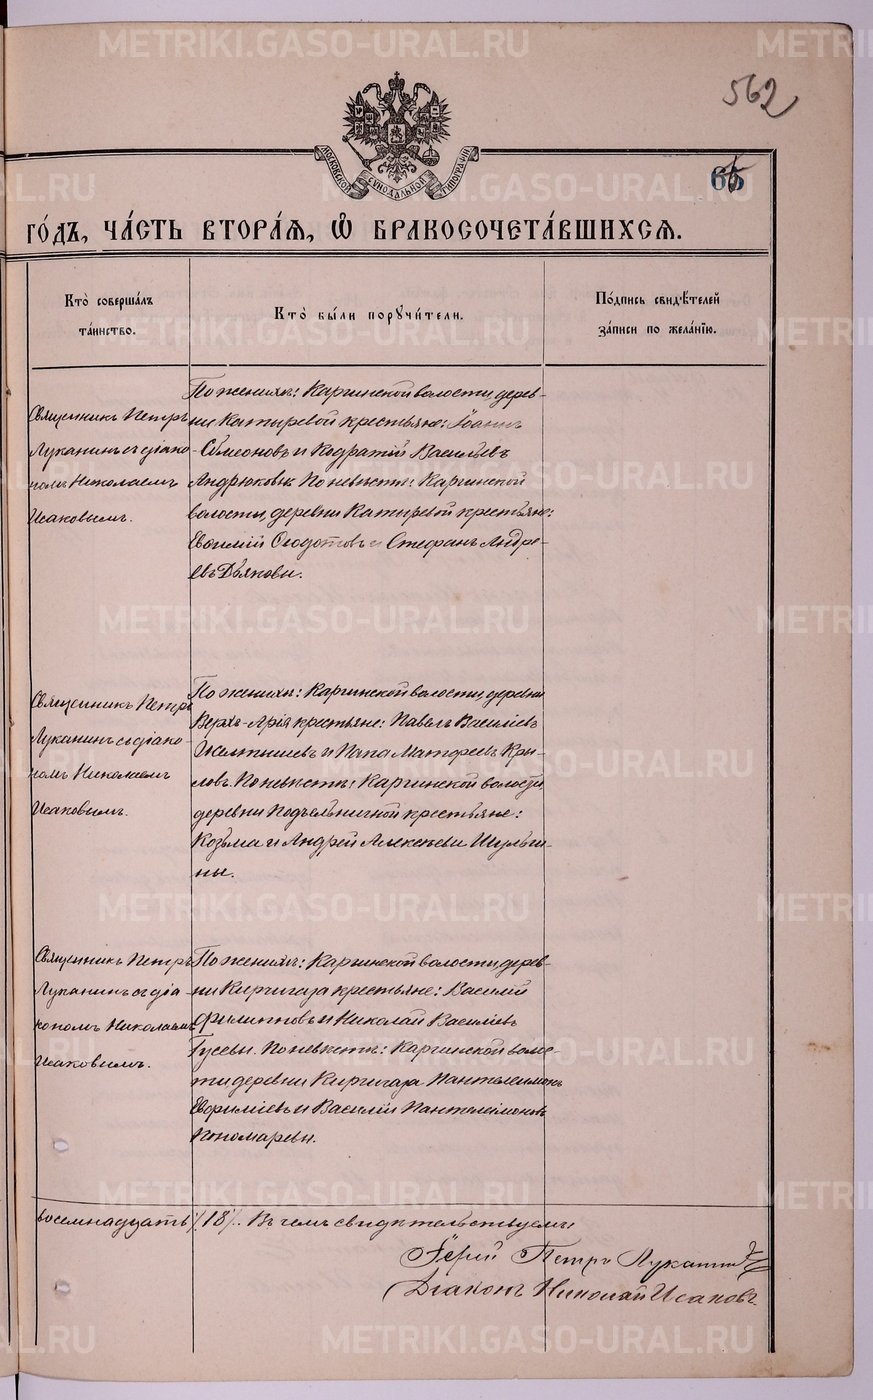 562
65
МОСКОВСКОЙ СѴНОДАЛЬНОЙ ТИПОГРАФІИ
ГО́ДЪ, ЧА́СТЬ ВТОРА́Я, Ѡ БРАКОСОЧЕТА́ВШИХСЯ.
Кто̀ соверша́лъ
та́инство.
Кто̀ бы́ли порꙋчи́тели.
По́дпись свидѣ́телей
за́писи по жела́нїю.
Священникъ Петръ
Луканинъ съ діако-
номъ Николаемъ
Исаковымъ.
По женихѣ: Каргинской волости, дерев-
ни Катыревой крестьяне: Іоаннъ
Симеоновъ и Кодратій Васильевъ
Андрюковы. По невѣстѣ: Каргинской
волости, деревни Катыревой крестьяне:
Евѳимій Ѳедотовъ и Стефанъ Андре-
евъ Дьяковы.
Священникъ Петръ
Луканинъ съ діако-
номъ Николаемъ
Исаковымъ.
По женихѣ: Каргинской волости, деревни
Верхъ-Арія крестьяне: Павелъ Василіевъ
и Матфеевъ Кры-
ловъ. По невѣстѣ: Каргинской волости,
деревни Подъельничной крестьяне:
Козьма и Андрей Алексѣевы Шульги-
ны.
Священникъ Петръ
Луканинъ съ діа-
кономъ Николаемъ
Исаковымъ.
По женихѣ: Каргинской волости, дерев-
ни Киргигаза крестьяне: Василій
Филипповъ и Николай Василіевъ
Гусевы. По невѣстѣ: Каргинской волос-
ти деревни Киргигаза Пантелеимонъ
Евфиміевъ и Василій Пантелеимоновъ
Пономаревы.
восемнадцать /18/. Въ чемъ свидѣтельствуемъ:
Іерей Петръ Луканинъ
Діаконъ Николай Исаковъ.
METRIKI.GASO-URAL.RU